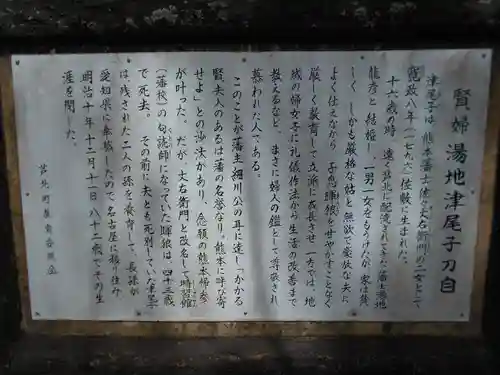 賢婦湯地津尾子刀自
津尾子は、熊本藩士佐々丈右衛門の二女として
寛政八年(一七九六)佐敷に生まれた。
十六歳の時、遠く葦北に配流されてきた藩士湯地
龍彦と結婚、一男一女をもうけたが、家は貧
しく、しかも厳格な姑と無欲で豪放な夫に
よく仕えながら、子息 を甘やかすことなく
厳しく教育して立派に成長させ、一方では、地
域の婦女子に礼儀作法から生活の改善まで
教えるなど、まさに婦人の鑑として尊敬され
慕われた人である。
このことが藩主細川公の耳に達し「かかる
賢夫人のあるは藩の名誉なり。熊本に呼び寄
せよ」との沙汰があり、念願の熊本帰参
が叶った。だが、丈右衛門と改名して時習館
(藩校)の句読師になっていた 狼は、四十三歳
で死去。その前に夫とも死別していた津尾子
は、残された二人の孫を養育して、長孫が
愛知県に奉職したので名古屋に移り住み、
明治十年十二月十一日八十二歳でその生
涯を閉じた。
芦北町教育委員会